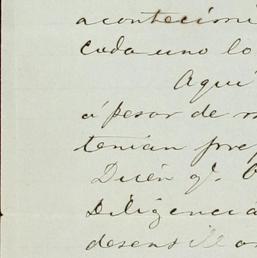 acontecimi
cada uno lo
Aquí
á pesar de
tenían pre
Dicen qe.
Diligencia
desensillar